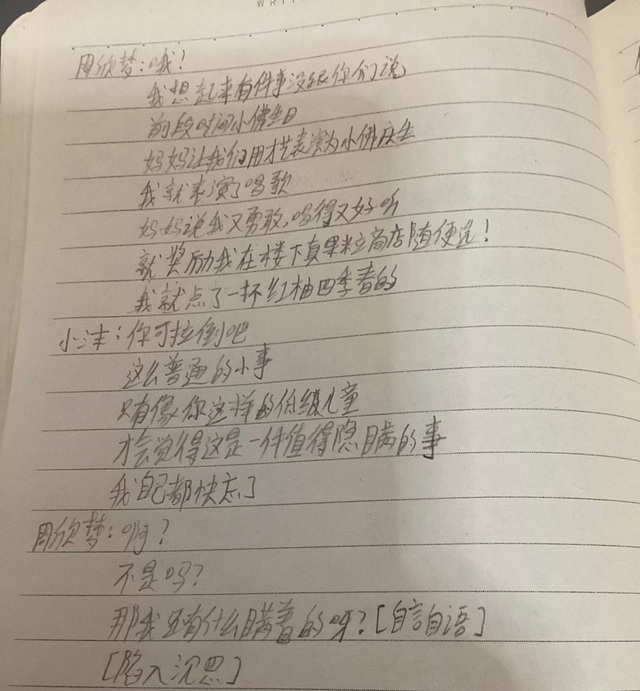 WRIT
周欣梦：哦！
我想起来有件事没跟你们说
前段时间小佛生日
妈妈让我们用才艺表演为小佛庆生
我就表演了唱歌
妈妈说我又勇敢，唱得又好听
就奖励我在楼下真果粒商店随便选！
我就点了一杯红柚四季春的
小沣：你可拉倒吧
这么普通的小事
只有像你这样的低级儿童
才会觉得这是一件值得隐瞒的事
我自己都快忘了
周欣梦：啊？
不是吗？
那我还有什么瞒着的呀？[自言自语]
[陷入沉思]